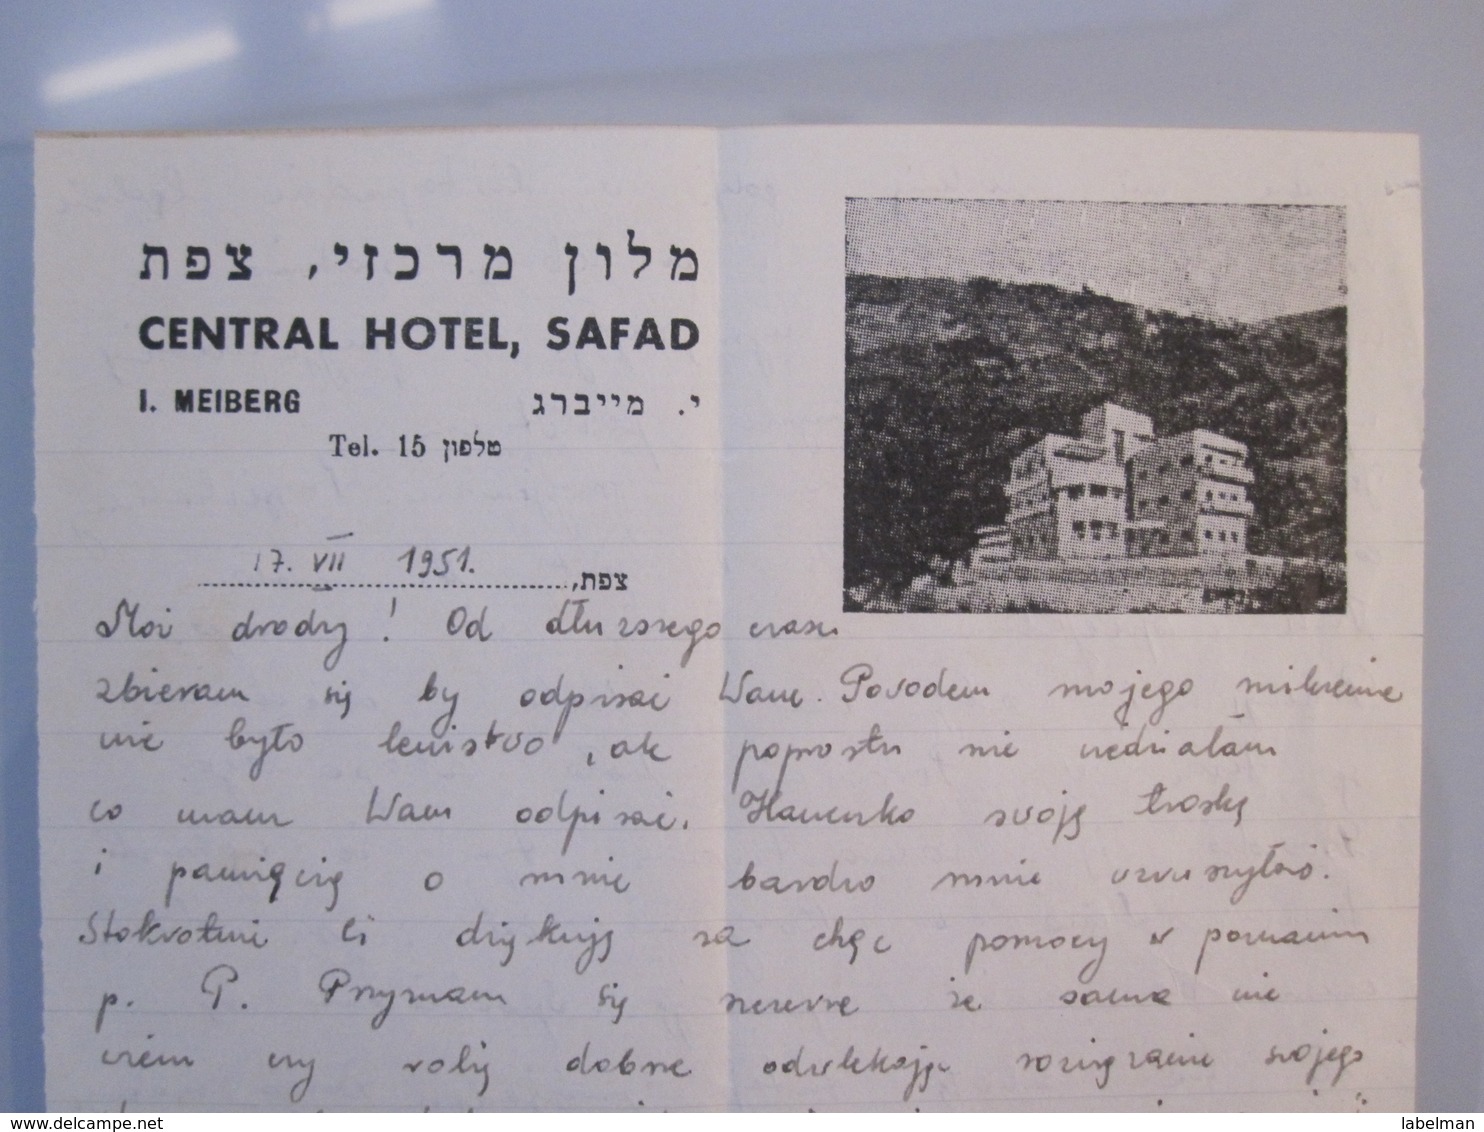 מלון מרכזי, צפת
CENTRAL HOTEL, SAFAD
I. MEIBERG י. מייברג
Tel. 15 טלפון
17. VII 1951. צפת,
Moi drodzy! Od dłuższego czasu
zbieram się by odpisać Wam. Powodem mojego milczenia
nie było lenistwo, ale poprostu nie wiedziałam
co mam Wam odpisać. Haneczko swoją troską
i pamięcią o mnie bardzo mnie wzruszyłaś.
Stokrotnie Ci dziękuję za chęć pomocy w poznaniu
p. P. Przyznam się szczerze że sama nie
wiem czy robię dobrze odwlekając rozwiązanie swojego
www.delcampe.net
labelman